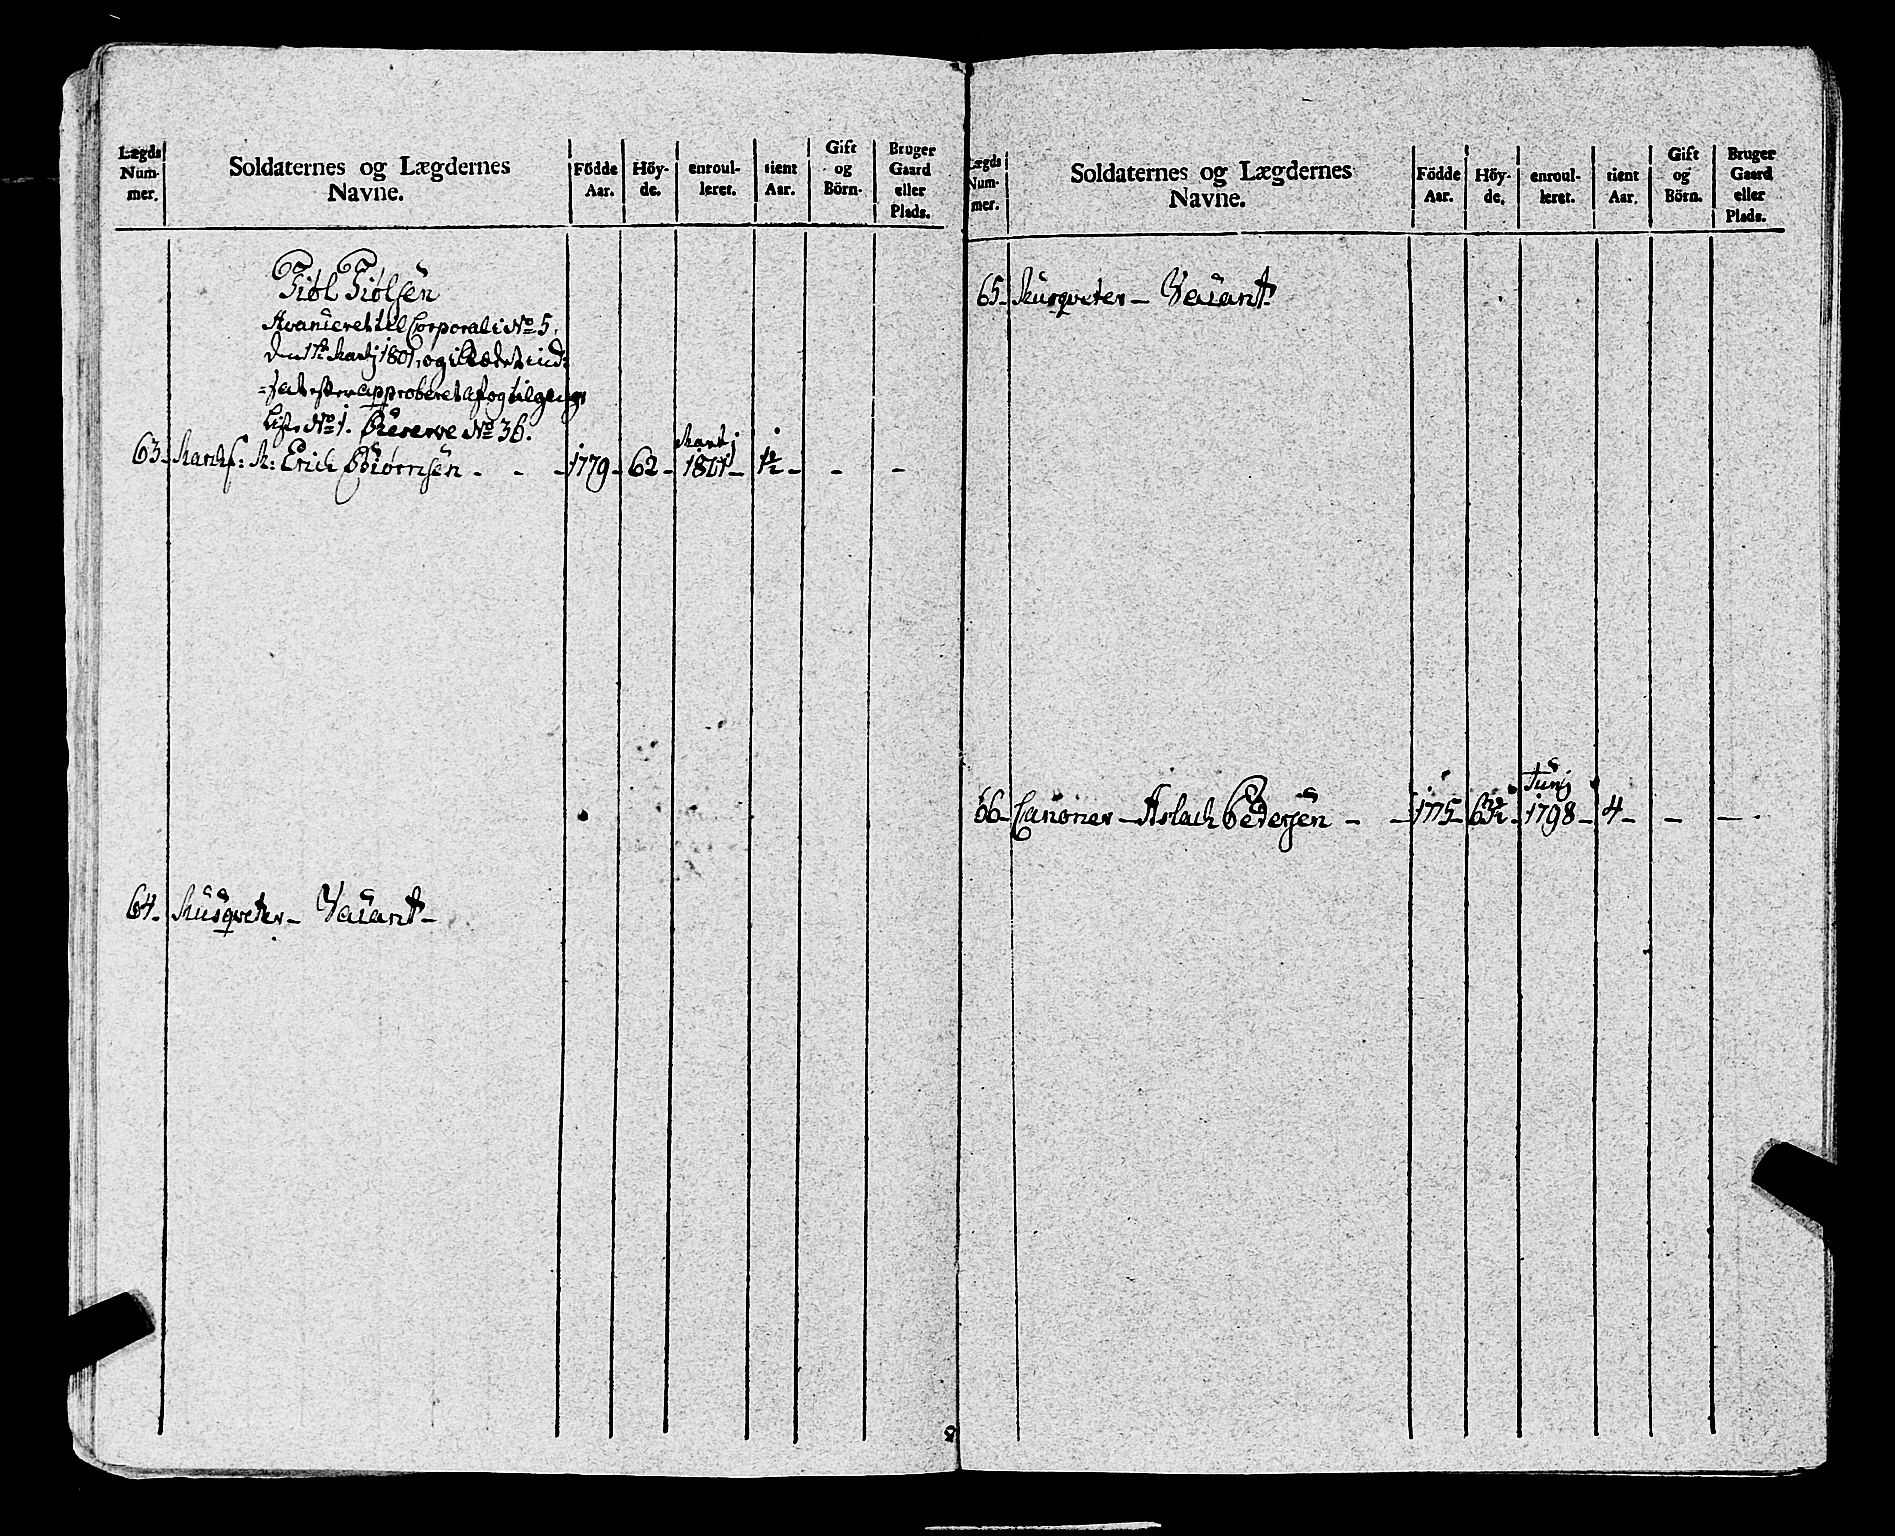 Lægds Num- mer.
Soldaternes og Lægdernes Navne.
Födde Aar.
Höy- de.
enroul- leret.
tient Aar.
Gift og Börn.
Bruger Gaard eller Plads.
Tiøl Tiølsen
Avanceret til Corporal i No 5,
den 1te Martj 1801, og i stædet ind=
=sat efter approberet af og tilgangs
Liste No 1. Reserve No 36.
63. M: Erich Biørnsen - - - 1779 - 62 - Martj 1801 - 1½ - - -
64. Musqveter - Vacant -
Lægds Num- mer.
Soldaternes og Lægdernes Navne.
Födde Aar.
Höy- de.
enroul- leret.
tient Aar.
Gift og Börn.
Bruger Gaard eller Plads.
65. Musqveter - Vacant.
66. Canoner - Aslach Pedersen - - 1775 - 63½ - Junj 1798 - 4 - - -